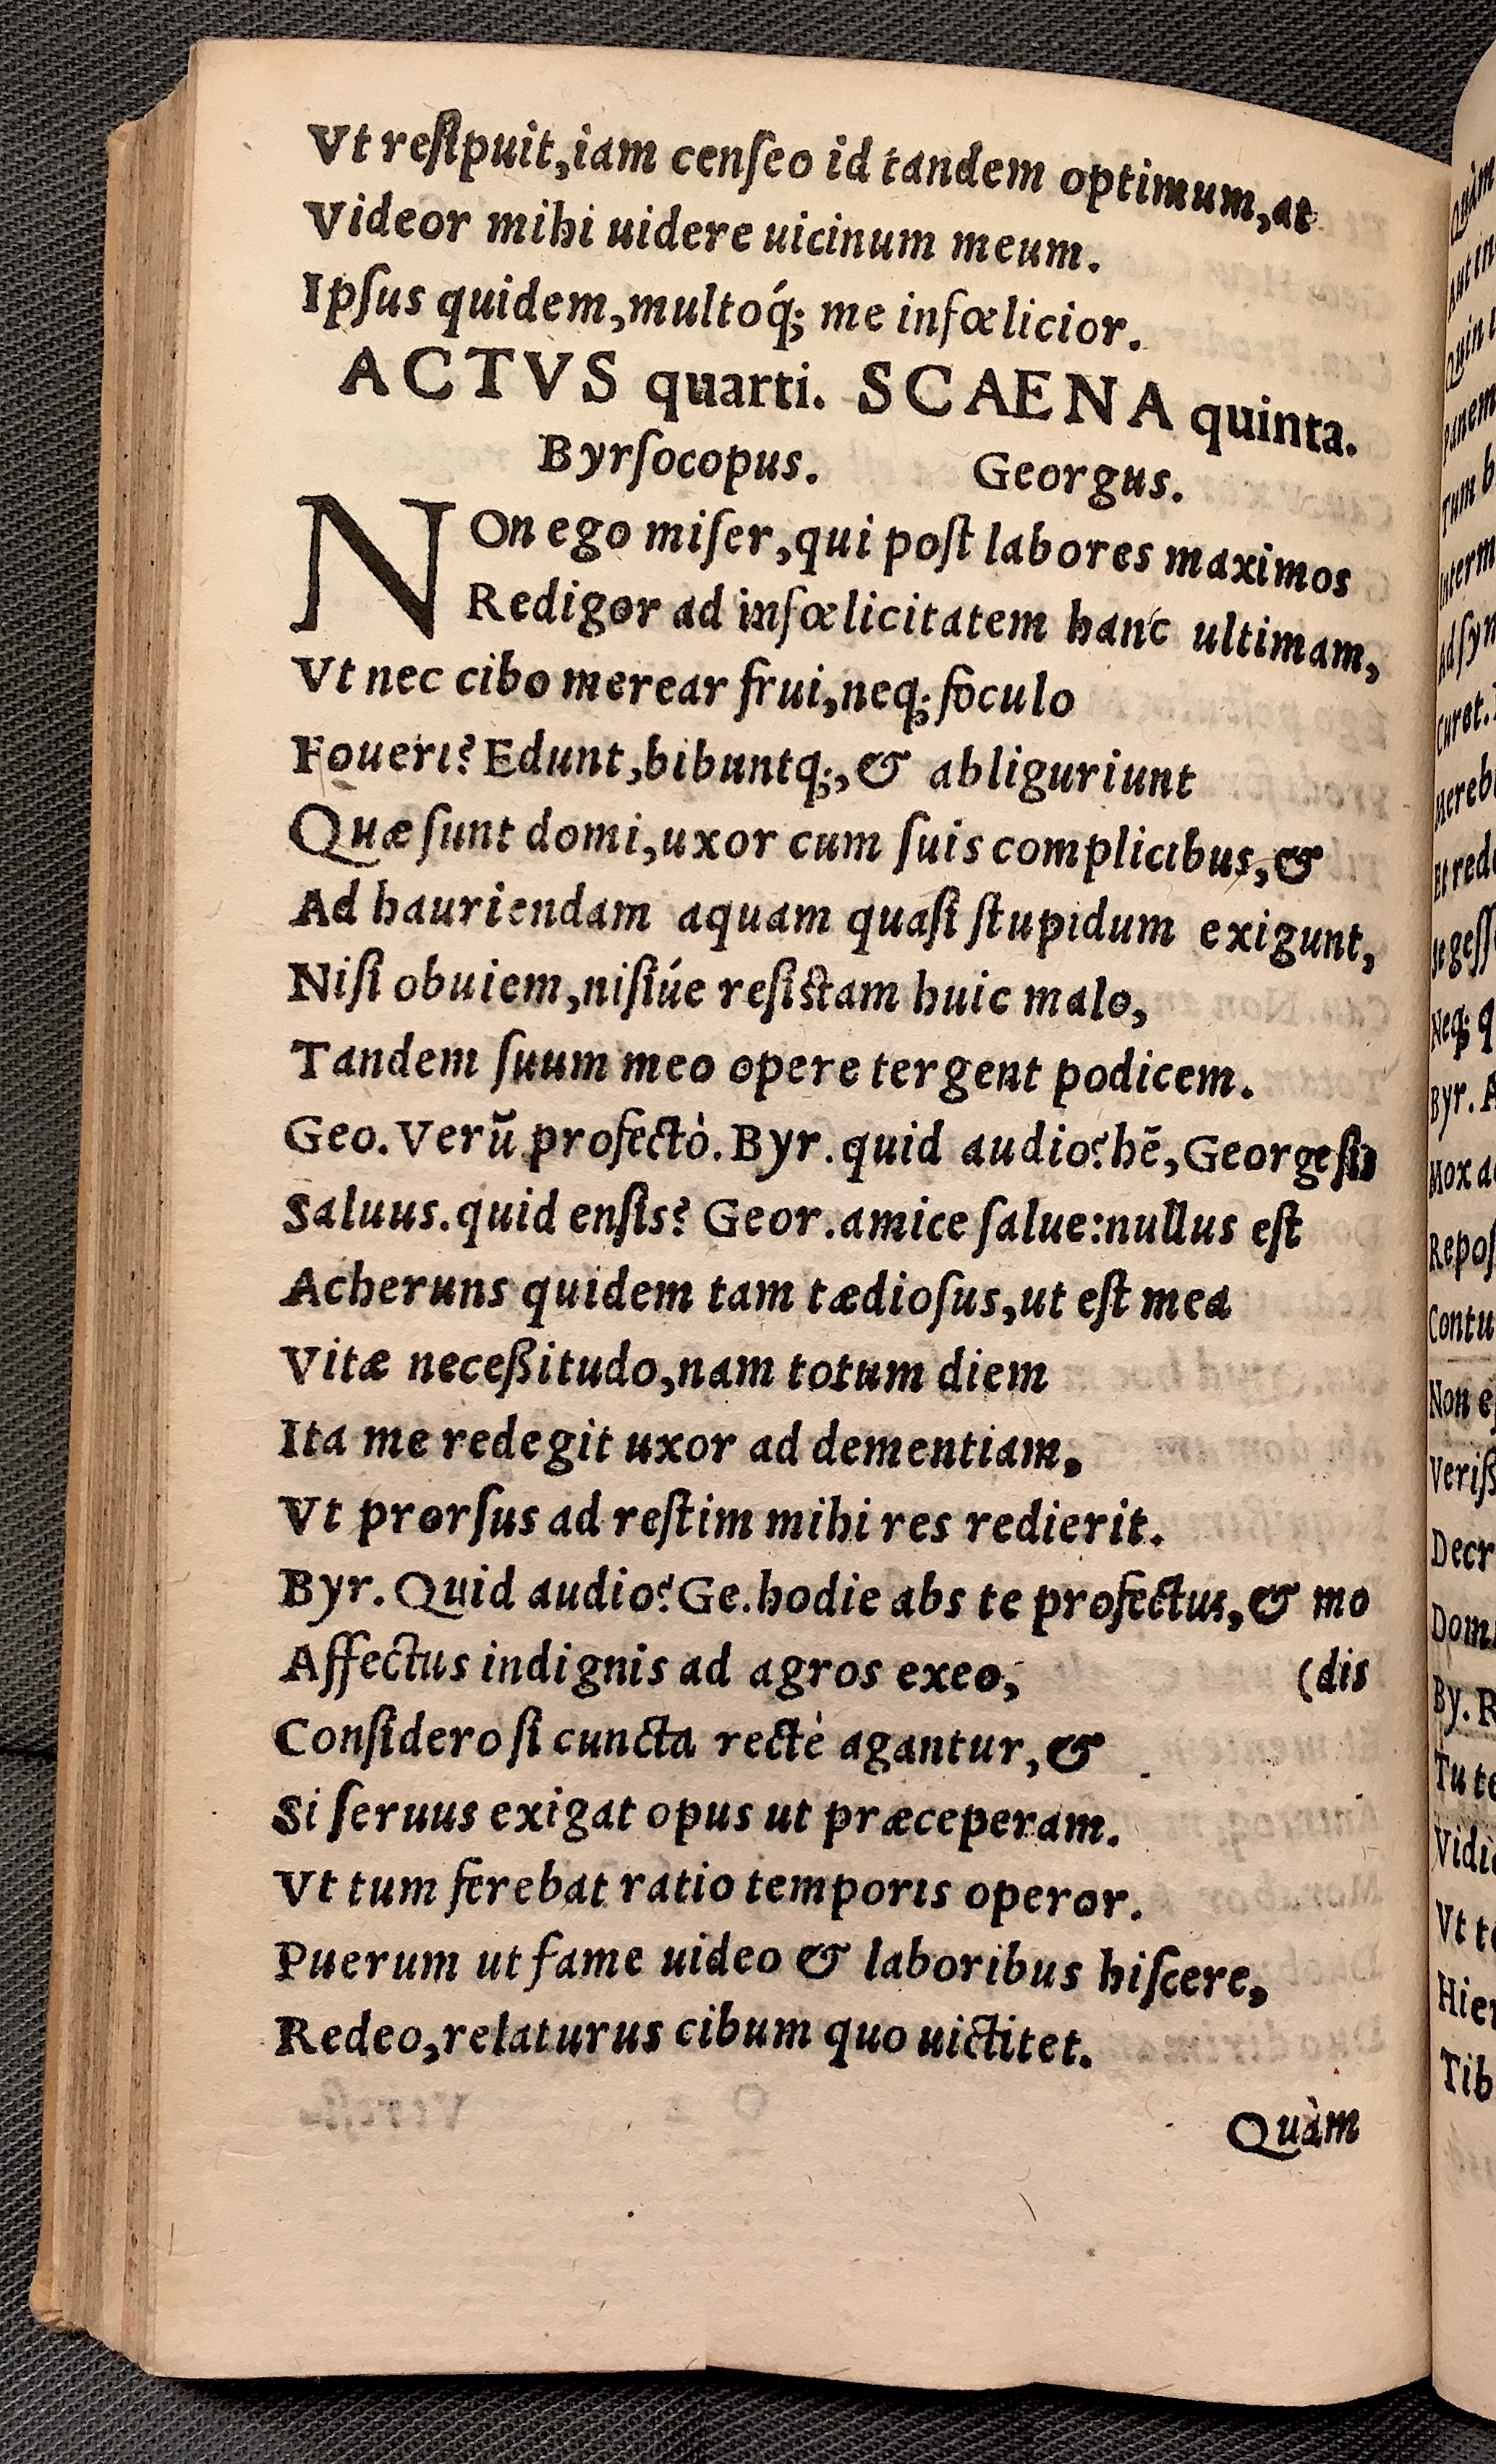 Vt reſipuit, iam cenſeo id tandem optimum, at
Videor mihi uidere uicinum meum.
Ipſus quidem, multoq́; me infœlicior.
ACTVS quarti. SCAENA quinta.
Byrſocopus. Georgus.
NOn ego miſer, qui poſt labores maximos
Redigor ad infœlicitatem hanc ultimam,
Vt nec cibo merear frui, neq; foculo
Foueri? Edunt, bibuntq;, & abliguriunt
Quæ ſunt domi, uxor cum ſuis complicibus, &
Ad hauriendam aquam quaſi ſtupidum exigunt,
Niſi obuiem, niſiúe reſiſtam huic malo,
Tandem ſuum meo opere tergent podicem.
Geo. Verũ profectò. Byr. quid audio? hẽ, George ſis
Saluus. quid enſis? Geor. amice ſalue: nullus eſt
Acheruns quidem tam tædioſus, ut eſt mea
Vitæ neceßitudo, nam totum diem
Ita me redegit uxor ad dementiam,
Vt prorſus ad reſtim mihi res redierit.
Byr. Quid audio? Ge. hodie abs te profectus, & mo
Affectus indignis ad agros exeo, (dis
Conſidero ſi cuncta rectè agantur, &
Si ſeruus exigat opus ut præceperam.
Vt tum ferebat ratio temporis operor.
Puerum ut fame uideo & laboribus hiſcere,
Redeo, relaturus cibum quo uictitet.
Quàm
Quàm
Aut in
Panem
Tum b
Interm
Ad ſyn
Curet.
Merebi
Et redd
Neq; q
Byr. A
Mox ad
Repoſ
Contu
Non eſ
Veriß
Decr
Dom
By. R
Tu te
Vidi
Vt te
Hier
Tib